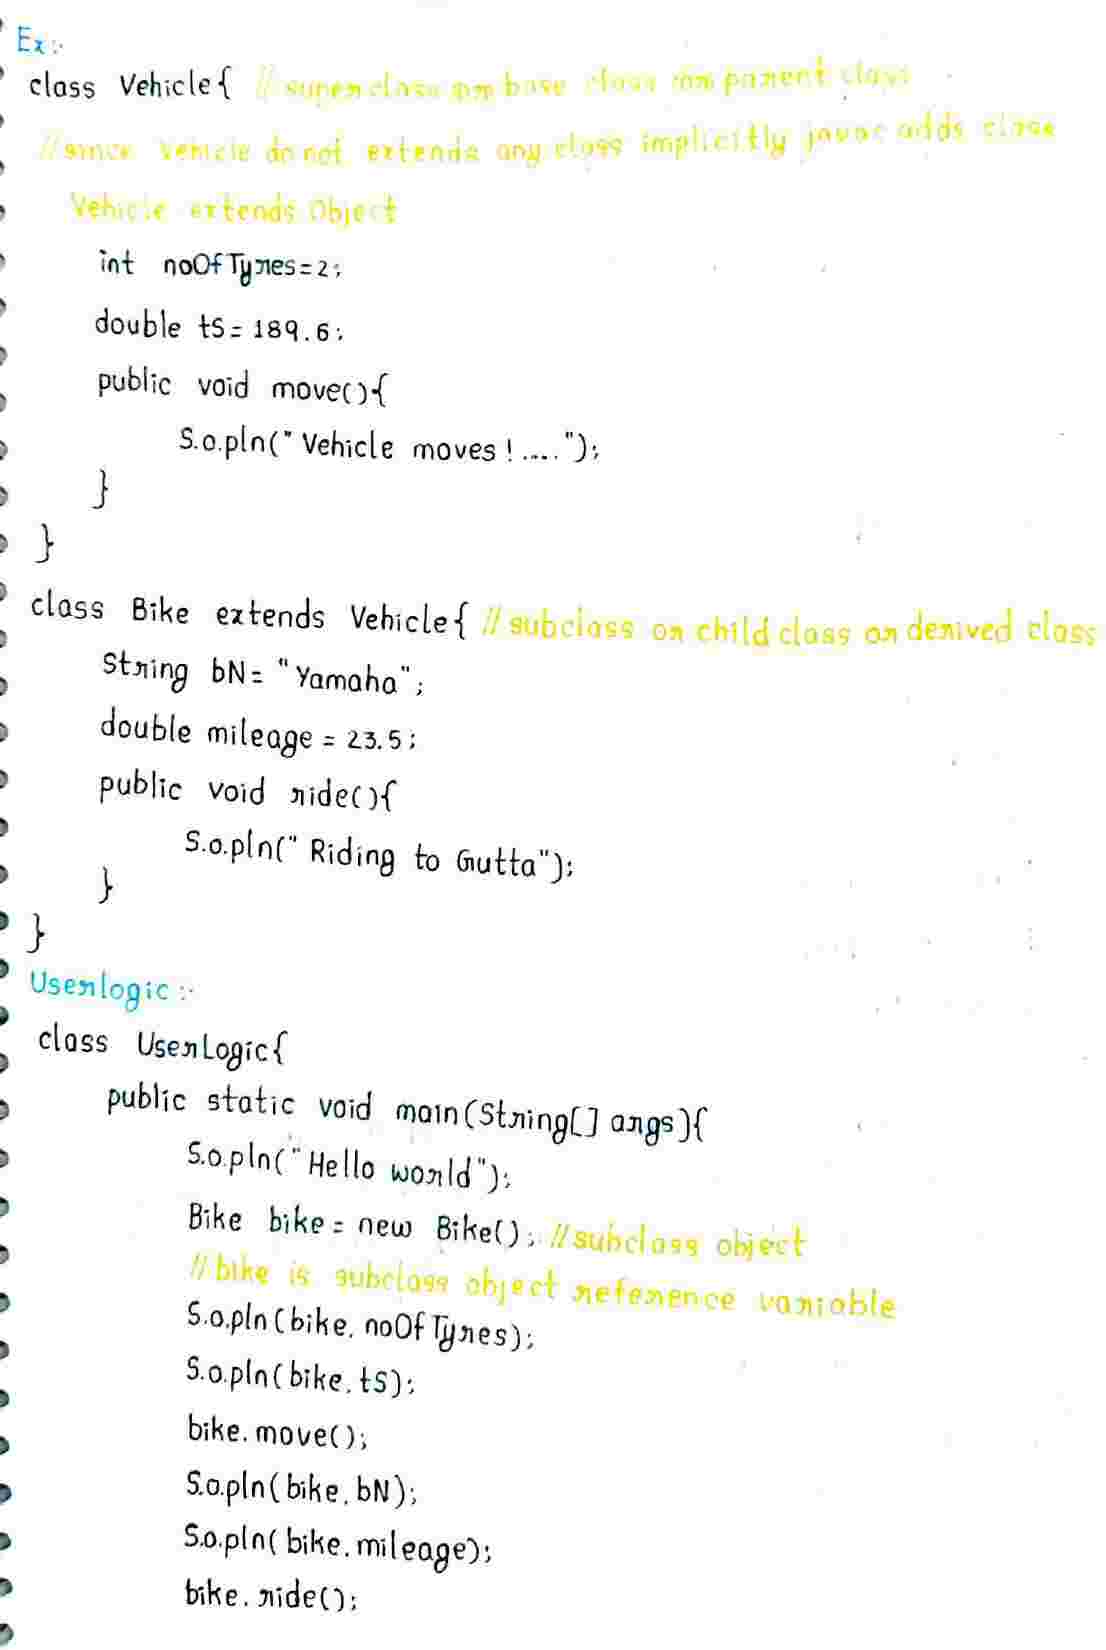 Ex:-
class Vehicle{ // superclass or base class or parent class
//since Vehicle do not extends any class implicitly javac adds class
Vehicle extends Object
int noOfTyres=2;
double tS=189.6;
public void move(){
S.o.pln("Vehicle moves!....");
}
}
class Bike extends Vehicle{ //subclass or child class or derived class
String bN= "Yamaha";
double mileage = 23.5;
public void ride(){
S.o.pln(" Riding to Gutta");
}
}
Userlogic:-
class UserLogic{
public static void main(String[] args){
S.o.pln("Hello world");
Bike bike= new Bike(); //subclass object
//bike is subclass object reference variable
S.o.pln(bike.noOfTyres);
S.o.pln(bike.tS);
bike.move();
S.o.pln(bike.bN);
S.o.pln(bike.mileage);
bike.ride();